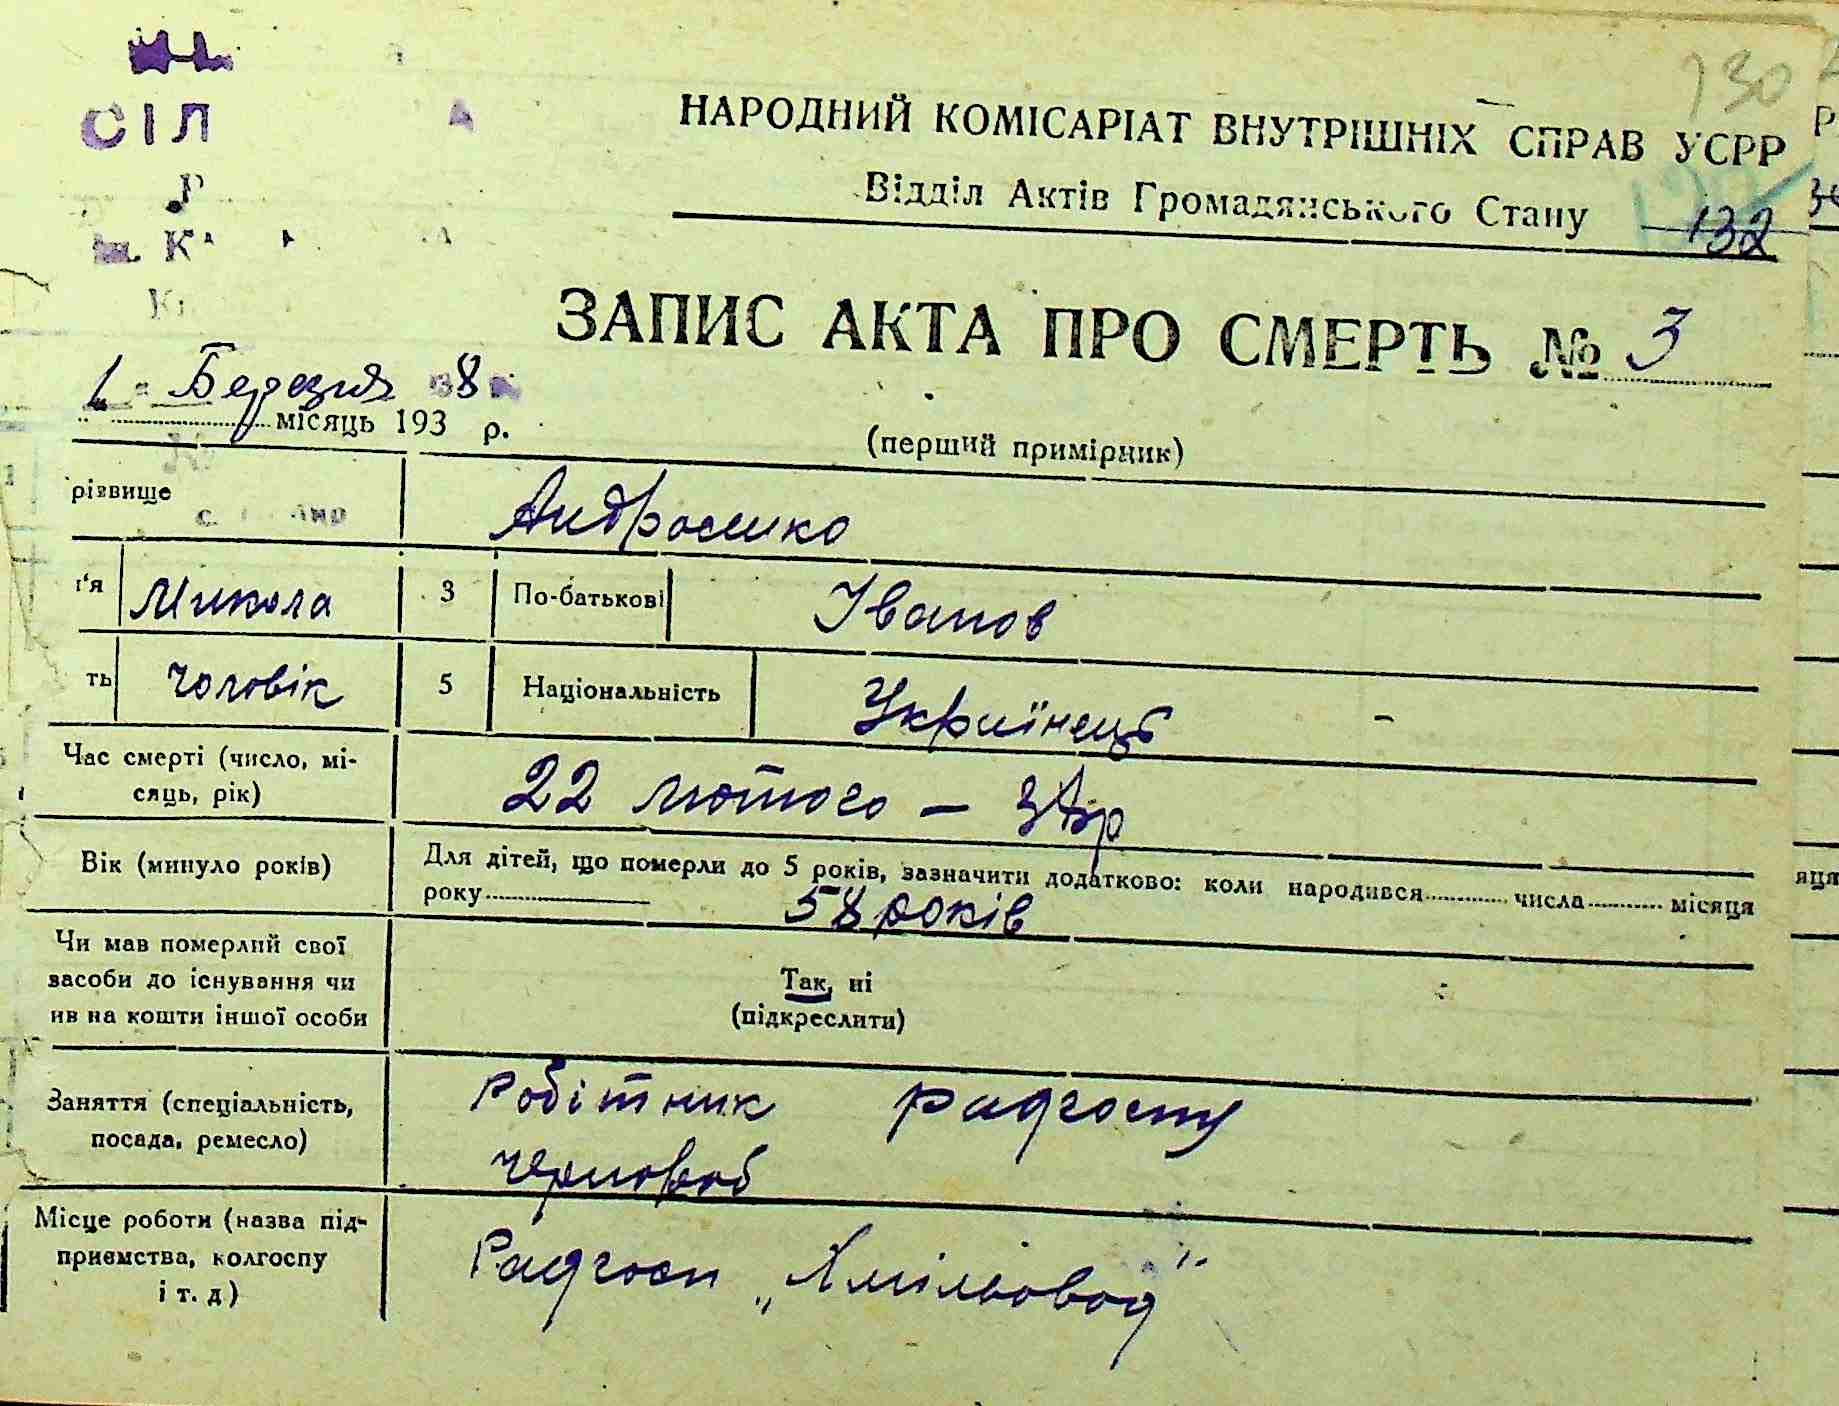 130
СІЛ
НАРОДНИЙ КОМІСАРІАТ ВНУТРІШНІХ СПРАВ УСРР
Відділ Актів Громадянського Стану 132
ЗАПИС АКТА ПРО СМЕРТЬ № 3
1 Березня 8
місяць 193 р.
(перший примірник)
різвище
Андросенко
г'я Микола 3 По-батькові Іванов
ть чоловік 5 Національність Українець
Час смерті (число, мі-
сяць, рік)
22 лютого –
Вік (минуло років)
Для дітей, що померли до 5 років, зазначити додатково: коли народився числа місяця
року 58 років
Чи мав померлий свої
засоби до існування чи
ив на кошти іншої особи
Так, ні
(підкреслити)
Заняття (спеціальність,
посада, ремесло)
Робітник радгоспу
чорнороб
Місце роботи (назва під-
приємства, колгоспу
і т. д)
Радгосп „Хмільовод"